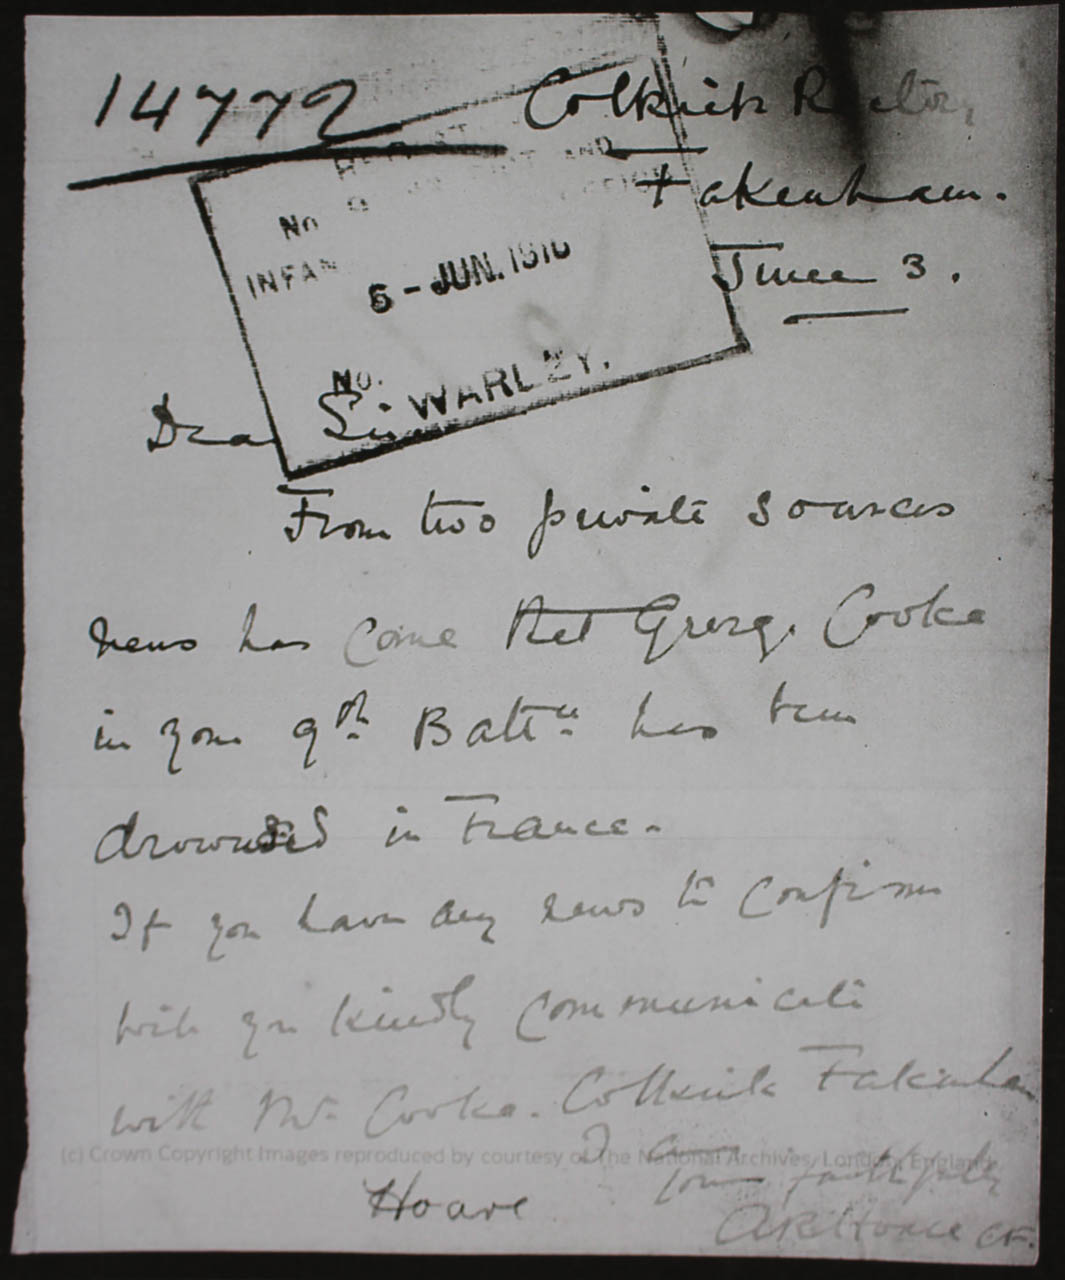 14772
Colkirk Rectory
Fakenham.
June 3.
No
INFAN
AND
6 - JUN. 1916
No.
WARLEY.
Dear Sir
From two private sources
news has come that George Cooke
in your 9th. Battn. has been
drowned in France.
If you have any news to confirm
will you kindly communicate
with Mr. Cooke. Colkirk Fakenham
I am
(c) Crown Copyright Images reproduced by courtesy of The National Archives, London, England.
yours faithfully
Hoare
Hoare CF.